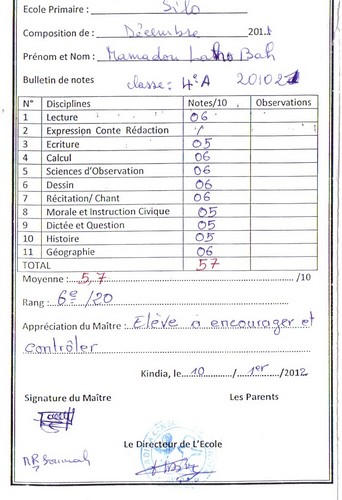 Ecole Primaire : Silo
Composition de : Décembre 2011
Prénom et Nom : Mamadou Latho Bah
Bulletin de notes classe : 4e A
N° Disciplines Notes/10 Observations
1 Lecture 06
2 Expression Conte Rédaction /
3 Ecriture 05
4 Calcul 06
5 Sciences d'Observation 06
6 Dessin 06
7 Récitation/ Chant 06
8 Morale et Instruction Civique 05
9 Dictée et Question 05
10 Histoire 05
11 Géographie 06
TOTAL 57
Moyenne : 5,7 /10
Rang : 6e /20
Appréciation du Maître : Elève à encourager et
contrôler
Kindia, le 10 / 1er / 2012
Signature du Maître Les Parents
Le Directeur de L'Ecole